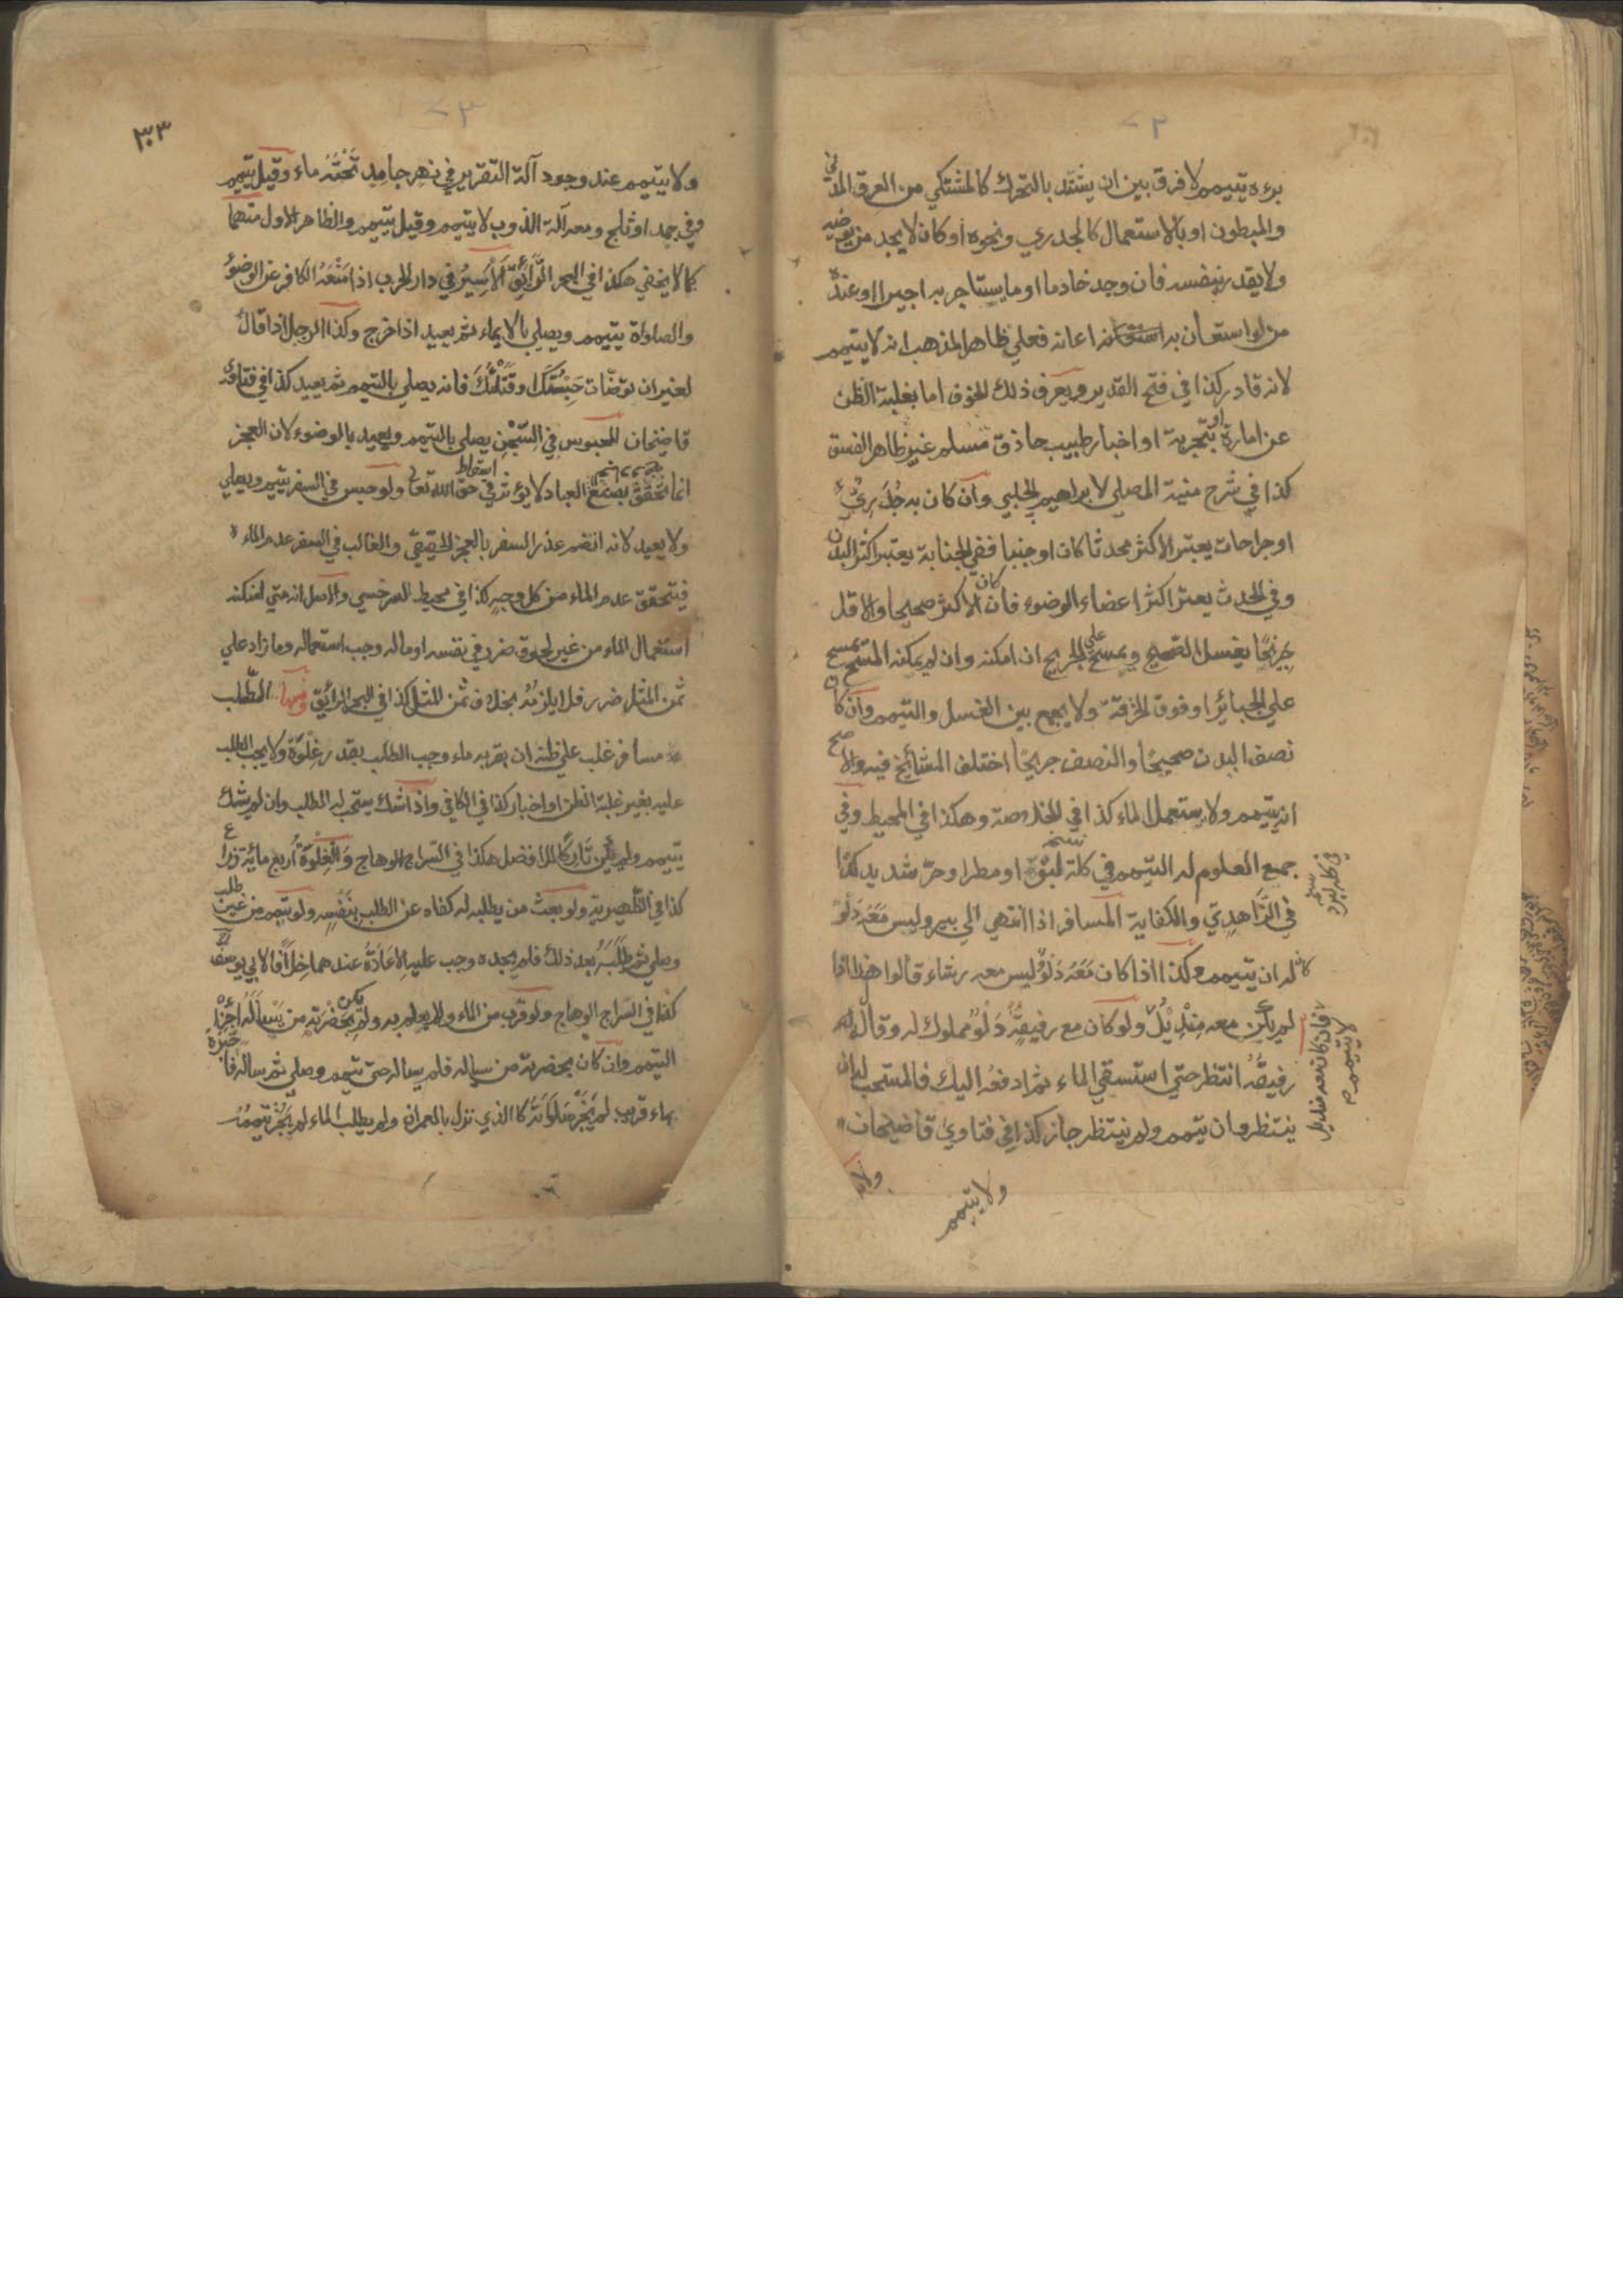 برءه تيممم لا فرق بين ان يشتد بالتحرك كالمشتكي من العرق المدني
والمبطون او بالاستعمال كالجدري ونحوه او كان لا يجد من يوضيه
ولا يقدر بنفسه فان وجد خادما او ما يستاجر به اجيرا او عنده
من لو استعان به اعانه فعلي ظاهر المذهب انه لا يتيمم
لانه قادر كذا في فتح القدير ويعرف ذلك الخوف اما بغلبة الظن
عن امارة او تجربة او اخبار طبيب حاذق مسلم غير ظاهر الفسق
كذا في شرح منية المصلي لابراهيم الحلبي وان كان به جدري
او جراحات يعتبر الاكثر محدثا كان او جنبا ففي الجنابة يعتبر اكثر البدن
وفي الحدث يعتبر اكثر اعضاء الوضوء فان كان الاكثر صحيحا والاقل
جريحا يغسل الصحيح ويمسح علي الجريح ان امكنه وان لم يمكنه المسح يمسح
علي الجبائر او فوق الخرقة ولا يجمع بين الغسل والتيمم وان كان
نصف البدن صحيحا والنصف جريحا اختلف المشائخ فيه والاصح
انه يتيمم ولا يستعمل الماء كذا في الخلاصة وهكذا في المحيط وفي
جميع العلوم له التيمم في كلة لبق او مطر او حر شديد كذا
في الزاهدي والكفاية المسافر اذا انتهي الي بير وليس معه دلو
كان له ان يتيمم وكذا اذا كان معه دلو ليس معه رشاء قالوا هذا اذا
لم يكن معه منديل ولو كان مع رفيقه دلو مملوك له وقال له
رفيقه انتظر حتي استسقي الماء ثم ادفعه اليك فالمستحب له ان
ينتظر وان تيمم ولم ينتظر جاز كذا في فتاوي قاضيخان
فان كان معه منديل
لا يتيمم
ولا يتيمم
٣٠٣
ولا يتيمم عند وجود آلة التقوير في نهر جامد تحته ماء وقيل يتيمم
وفي جمد او ثلج ومعه آلة الذوب لا يتيمم وقيل يتيمم والظاهر الاول منهما
كما لا يخفي هكذا في البحر الرائق الاسير في دار الحرب اذا منعه الكافر عن الوضوء
والصلواة يتيمم ويصلي بالايماء ثم يعيد اذا خرج وكذا الرجل اذا قال
لغيره ان توضات حبستك او قتلتك فانه يصلي بالتيمم ثم يعيد كذا في فتاوي
قاضيخان المحبوس في السجن يصلي بالتيمم ويعيد بالوضوء لان العجز
انما تحقق بصنع العباد لا يؤثر في اسقاط حق الله تعالي ولو حبس في السفر يتيمم ويصلي
ولا يعيد لانه انضم عذر السفر بالعجز الحقيقي والغالب في السفر عدم الماء
فيتحقق عدم الماء من كل وجه كذا في محيط السرخسي والاصل انه متي امكنه
استعمال الماء من غير لحوق ضرر في نفسه او ماله وجب استعماله وما زاد علي
ثمن المثل ضرر فلا يلزمه بخلاف ثمن المثل كذا في البحر الرائق ومنها الطلب
مسافر غلب علي ظنه ان بقربه ماء وجب الطلب بقدر غلوة ولا يجب الطلب
عليه بغير غلبة الظن او اخبار كذا في الكافي واذا شك يستحب له الطلب وان لم يشك
يتيمم ولم يكن تاركا للافضل هكذا في السراج الوهاج والغلوة اربع مائة ذراع
كذا في الظهيرية ولو بعث من يطلبه له كفاه عن الطلب بنفسه ولو تيمم من غير طلب
وصلي ثم طلبه بعد ذلك فلم يجده وجب عليه الاعادة عندهما خلافا لابي يوسف
كذا في السراج الوهاج ولو قرب من الماء ولا يعلم به ولم يكن بحضرته من يسأله اجزاه
التيمم وان كان بحضرته من يساله فلم يساله حتي تيمم وصلي ثم ساله فاخبره
بماء قريب لم يجز صلواته كالذي نزل بالعمران ولم يطلب الماء لم يجز تيممه